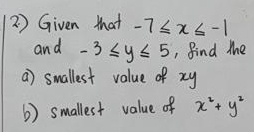 2) Given that -7 ≤ x ≤ -1
and -3 ≤ y ≤ 5, find the
a) smallest value of xy
b) smallest value of x² + y²